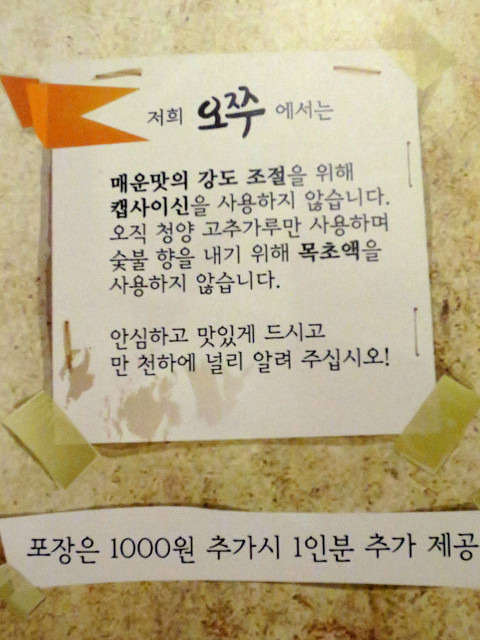 저희 오쭈 에서는
매운맛의 강도 조절을 위해
캡사이신을 사용하지 않습니다.
오직 청양 고추가루만 사용하며
숯불 향을 내기 위해 목초액을
사용하지 않습니다.
안심하고 맛있게 드시고
만 천하에 널리 알려 주십시오!
포장은 1000원 추가시 1인분 추가 제공